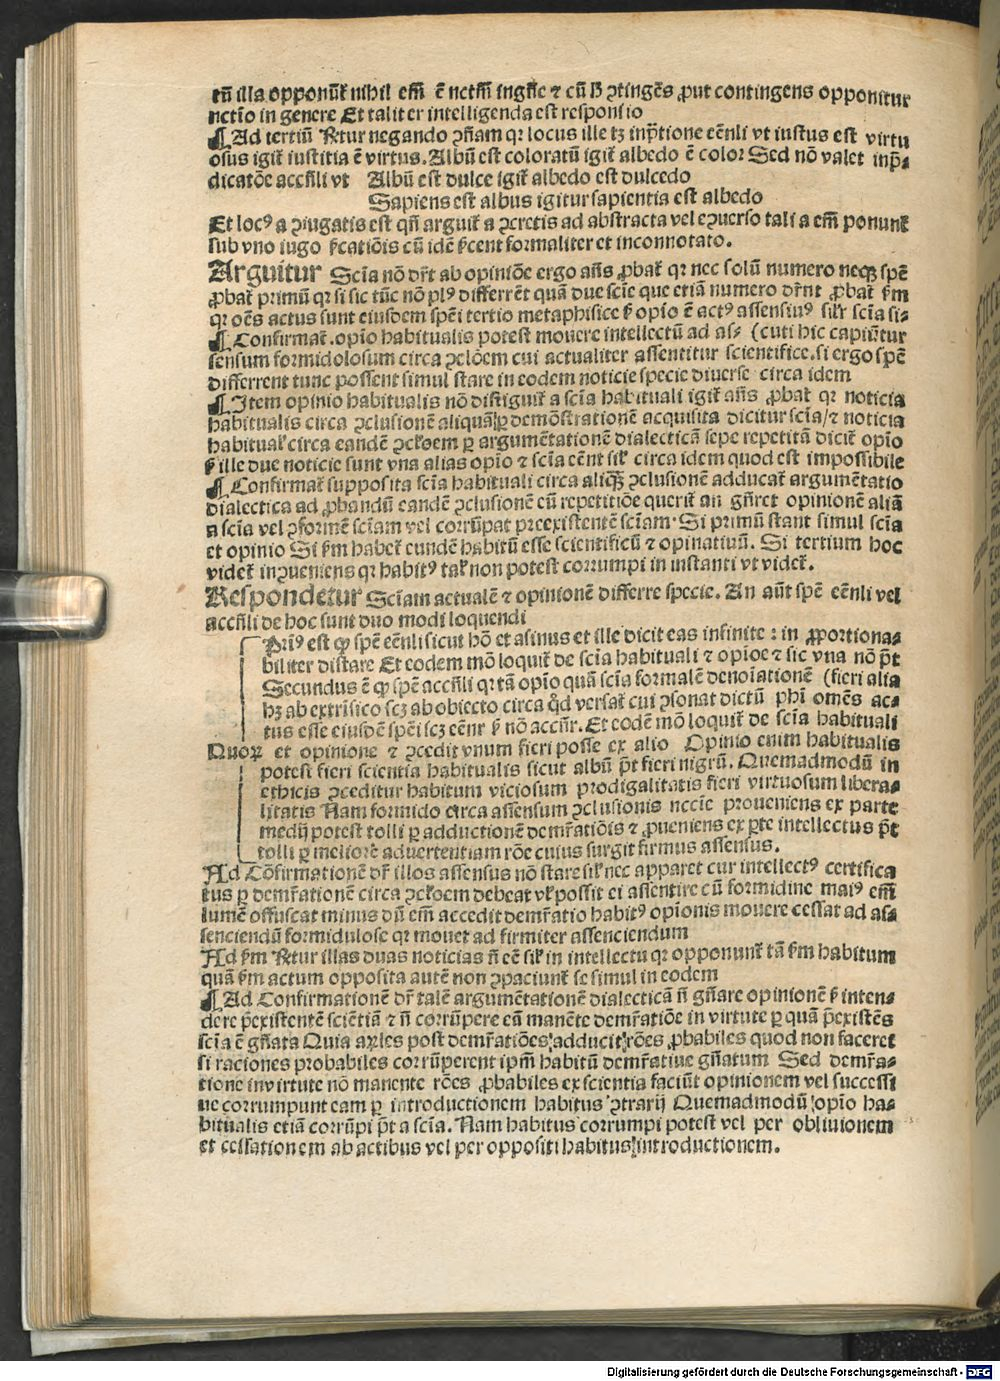 tũ illa opponũt nihil em̃ ẽ nctm̃ ingñe ⁊ cũ ꝯtingẽs ꝓut contingens opponitur
nctĩo in genere Et taliter intelligenda est responsio
¶ Ad tertiũ Rꝛtur negando ꝯñam qꝛ locus ille tꝫ inp̃tione eẽnli vt iustus est virtu
osus igit̃ iustitia ẽ virtus. Albũ est coloratũ igit̃ albedo ẽ color Sed nõ valet inp̃⸗
dicatõe accñli vt Albũ est dulce igit̃ albedo est dulcedo
Sapiens est albus igitur sapientia est albedo
Et locꝰ a ꝯiugatis est qñ arguit̃ a ꝯcretis ad abstracta vel eꝯuerso tali a em̃ ponunt̃
sub vno iugo p̃catiõis cũ idẽ p̃cent formaliter et inconnotato.
Arguitur Scĩa nõ dr̃t ab opiniõe ergo añs ꝓbat̃ qꝛ nec solũ numero neqꝫ spẽ
ꝓbat̃ primũ qꝛ si sic tũc nõ plꝰ differrẽt quã due scĩe que etiã numero dr̃nt ꝓbat̃ scðm
qꝛ oẽs actus sunt eiusdem spẽi tertio metaphisice sꝫ opĩo ẽ actꝰ assensiuꝰ silr̃ scĩa si⸗
¶ Confirmat̃. opĩo habitualis potest mouere intellectũ ad as⸗ (cuti hic capiũtur
sensum formidolosum circa ꝯclõem cui actualiter assentitur scientifice. si ergo spẽ
differrent tunc possent simul stare in eodem noticie specie diuerse circa idem
¶ Item opinio habitualis nõ distiguit̃ a scĩa habituali igit̃ añs ꝓbat̃ qꝛ noticia
habitualis circa ꝯclusionẽ aliquã ꝑ demõstrationẽ acquisita dicitur scĩa/ ⁊ noticia
habitual̃ circa eandẽ ꝯcl̃oem ꝑ argumẽtationẽ dialecticã sepe repetitã dicit̃ opĩo
sꝫ ille due noticie sunt vna alias opĩo ⁊ scĩa eẽnt sil̃ circa idem quod est impossibile
¶ Confirmat̃ supposita scĩa habituali circa aliqꝫ ꝯclusionẽ adducat̃ argumẽtatio
dialectica ad ꝓbandũ eandẽ ꝯclusionẽ cũ repetitiõe querit̃ an gñret opinionẽ aliã
a scĩa vel ꝯformẽ scĩam vel corrũpat preexistentẽ scĩam. Si primũ stant simul scĩa
et opinio Si scðm habet̃ eundẽ habitũ esse scientificũ ⁊ opinatiuũ. Si tertium hoc
videt̃ inꝯueniens qꝛ habitꝰ tal̃ non potest corrumpi in instanti vt videt̃.
Respondetur Scĩam actualẽ ⁊ opinionẽ differre specie. An aũt spẽ eẽnli vel
accñli de hoc sunt duo modi loquendi
Priꝰ est ꝙ spẽ eẽnli sicut hõ et asinus et ille dicit eas infinite : in ꝓportiona⸗
biliter distare Et eodem mõ loquit̃ de scĩa habituali ⁊ opĩoe ⁊ sic vna nõ pt̃
Secundus ẽ ꝙ spẽ accñli qꝛ tã opĩo quã scĩa formalẽ denoĩationẽ (fieri alia
hꝫ ab extrĩsico scꝫ ab obiecto circa qð versat̃ cui ꝯsonat dictũ phĩ omẽs ac⸗
tus esse eiusdẽ spẽi scꝫ eẽnr sꝫ nõ accñr. Et eodẽ mõ loquit̃ de scĩa habituali
Quoꝝ et opinione ⁊ ꝯcedit vnum fieri posse ex alio Opinio enim habitualis
potest fieri scientia habitualis sicut albũ pt̃ fieri nigrũ. Quemadmodũ in
ethicis ꝯceditur habitum viciosum prodigalitatis fieri virtuosum libera⸗
litatis Nam formido circa assensum ꝯclusionis nccie proueniens ex parte
medij potest tolli ꝑ adductionẽ demr̃atiõis ⁊ ꝓueniens ex ꝑte intellectus pt̃
tolli ꝑ meliorẽ aduertentiam rõe cuius surgit firmus assensus.
Ad Cõfirmationẽ dr̃ illos assensus nõ stare sil̃ nec apparet cur intellectꝰ certifica
tus ꝑ demr̃ationẽ circa ꝯcl̃oem debeat vl̃ possit ei assentire cũ formidine maiꝰ em̃
lumẽ offuscat minus dũ em̃ accedit demr̃atio habitꝰ opĩonis mouere cessat ad as⸗
senciendũ formidulose qꝛ mouet ad firmiter assenciendum
Ad scðm Rꝛtur illas duas noticias ñ eẽ sil̃ in intellectu qꝛ opponunt̃ tã scðm habitum
quã scðm actum opposita autẽ non ꝯpaciunt se simul in eodem
¶ Ad Confirmationẽ dr̃ talẽ argumẽtationẽ dialecticã ñ gñare opinionẽ sꝫ inten⸗
dere p̃existentẽ sciẽtiã ⁊ ñ corrũpere eã manẽte demr̃atiõe in virtute ꝑ quã p̃existẽs
scĩa ẽ gñata Quia arl̃es post demr̃atiões adducit rões ꝓbabiles quod non faceret
si raciones probabiles corrũperent ipm̃ habitũ demr̃atiue gñatum Sed demr̃a⸗
tione in virtute nõ manente rões ꝓbabiles ex scientia faciũt opinionem vel successi
ue corrumpunt eam ꝑ introductionem habitus ꝯtrarij Quemadmodũ opĩo ha⸗
bitualis etiã corrũpi pt̃ a scĩa. Nam habitus corrumpi potest vel per obliuionem
et cessationem ab actibus vel per oppositi habitus introductionem.
Digitalisierung gefördert durch die Deutsche Forschungsgemeinschaft - DFG